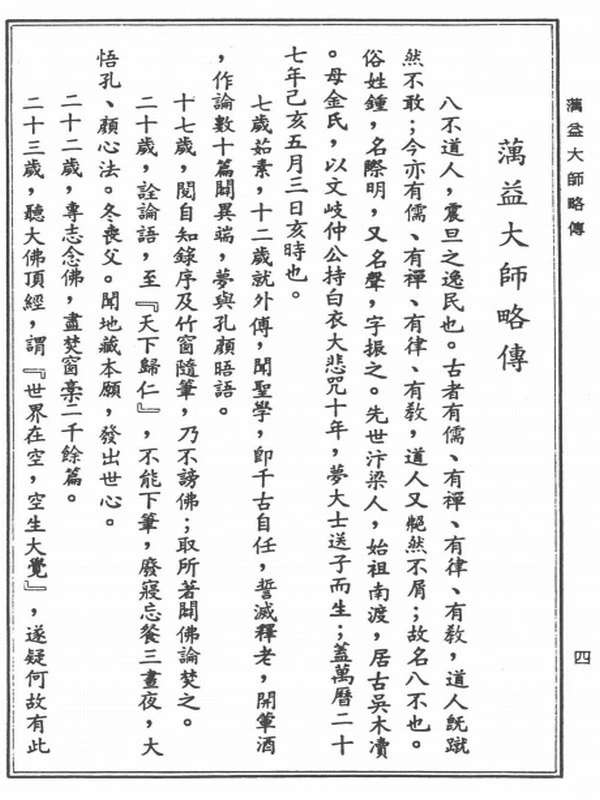 蕅益大師略傳
四
蕅益大師略傳
八不道人，震旦之逸民也。古者有儒、有禪、有律、有教，道人既蹴
然不敢；今亦有儒、有禪、有律、有教，道人又艴然不屑；故名八不也。
俗姓鍾，名際明，又名聲，字振之。先世汴梁人，始祖南渡，居古吳木瀆
。母金氏，以文岐仲公持白衣大悲咒十年，夢大士送子而生；蓋萬曆二十
七年己亥五月三日亥時也。
七歲茹素，十二歲就外傅，聞聖學，即千古自任，誓滅釋老，開葷酒
，作論數十篇闢異端，夢與孔顏晤語。
十七歲，閱自知錄序及竹窗隨筆，乃不謗佛；取所著闢佛論焚之。
二十歲，詮論語，至『天下歸仁』，不能下筆，廢寢忘餐三晝夜，大
悟孔、顏心法。冬喪父。聞地藏本願，發出世心。
二十二歲，專志念佛，盡焚窗稾二千餘篇。
二十三歲，聽大佛頂經，謂『世界在空，空生大覺』，遂疑何故有此